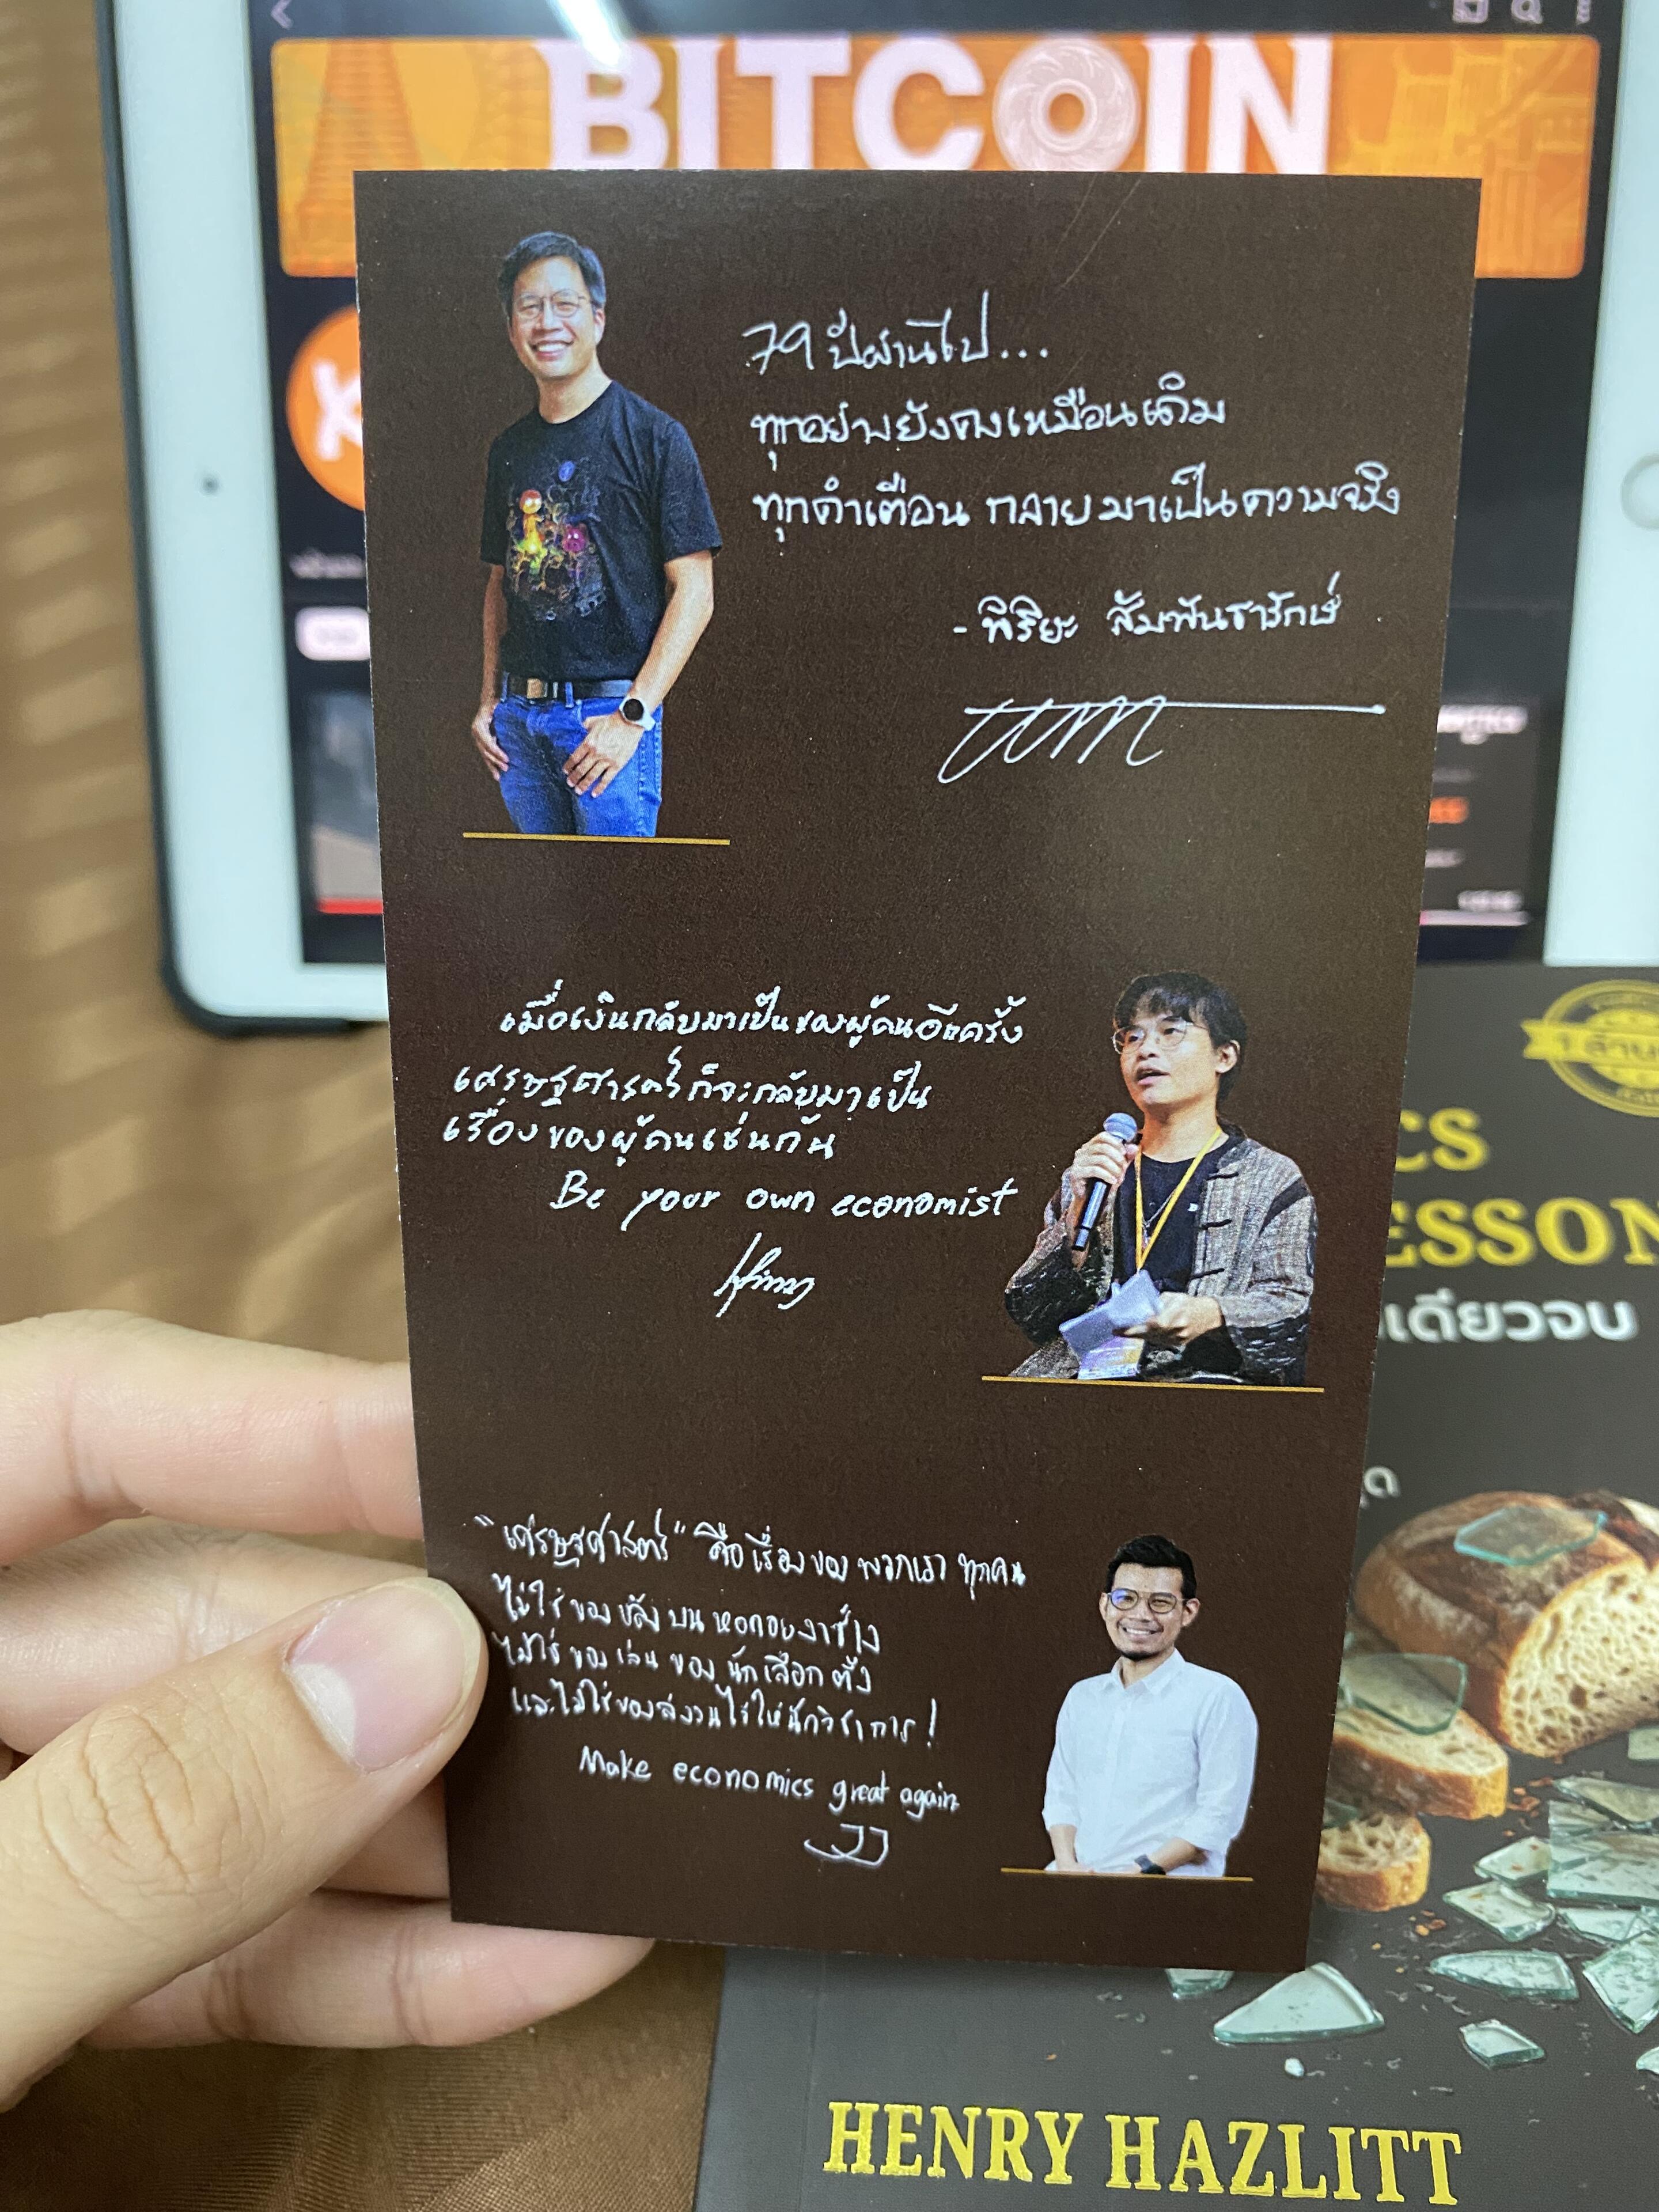 BITCOIN
79 ปีผ่านไป...
ทุกอย่างยังคงเหมือนเดิม
ทุกคำเตือน กลายมาเป็นความจริง
- พิริยะ สัมพันธารักษ์
เมื่อเงินกลับมาเป็นของผู้คนอีกครั้ง
เศรษฐศาสตร์ก็จะกลับมาเป็น
เรื่องของผู้คนเช่นกัน
Be your own economist
"เศรษฐศาสตร์" คือเรื่องของพวกเราทุกคน
ไม่ใช่ของขลังบนหอคอยงาช้าง
ไม่ใช่ของเล่นของนักเลือกตั้ง
และไม่ใช่ของสงวนไว้ให้นักวิชาการ!
Make economics great again
JJ
1 ล้าน
CS
ESSON
เดียวจบ
HENRY HAZLITT